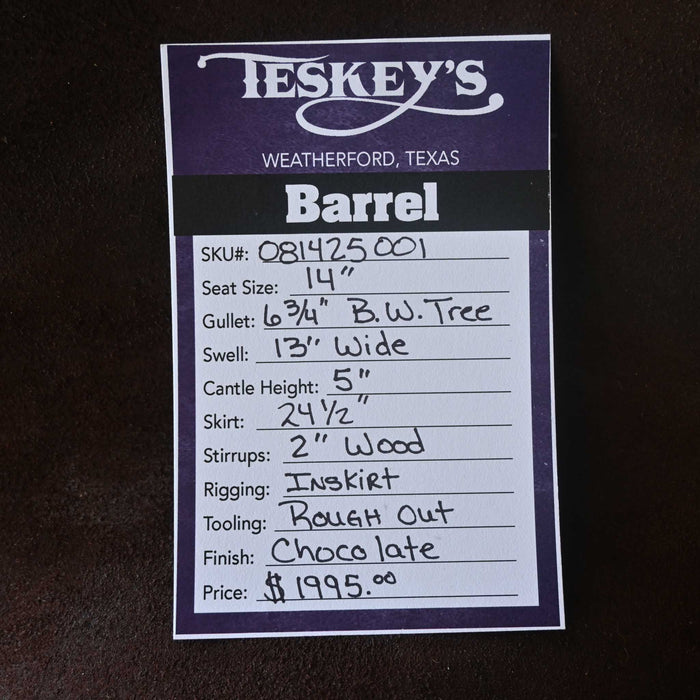 TESKEY'S
WEATHERFORD, TEXAS
Barrel
SKU#: 081425 001
Seat Size: 14"
Gullet: 6 3/4" B.W. Tree
Swell: 13" Wide
Cantle Height: 5"
Skirt: 24 1/2"
Stirrups: 2" Wood
Rigging: INSKIRT
Tooling: ROUGH OUT
Finish: Chocolate
Price: $1995.00